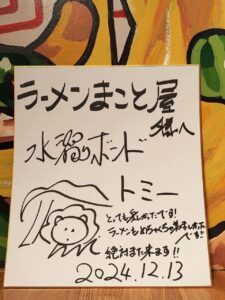 ラーメンまこと屋
様へ
水溜りボンド
トミー
とっても楽しかったです!
ラーメンもめちゃくちゃ美味しかった
です!
絶対また来ます!!
2024.12.13